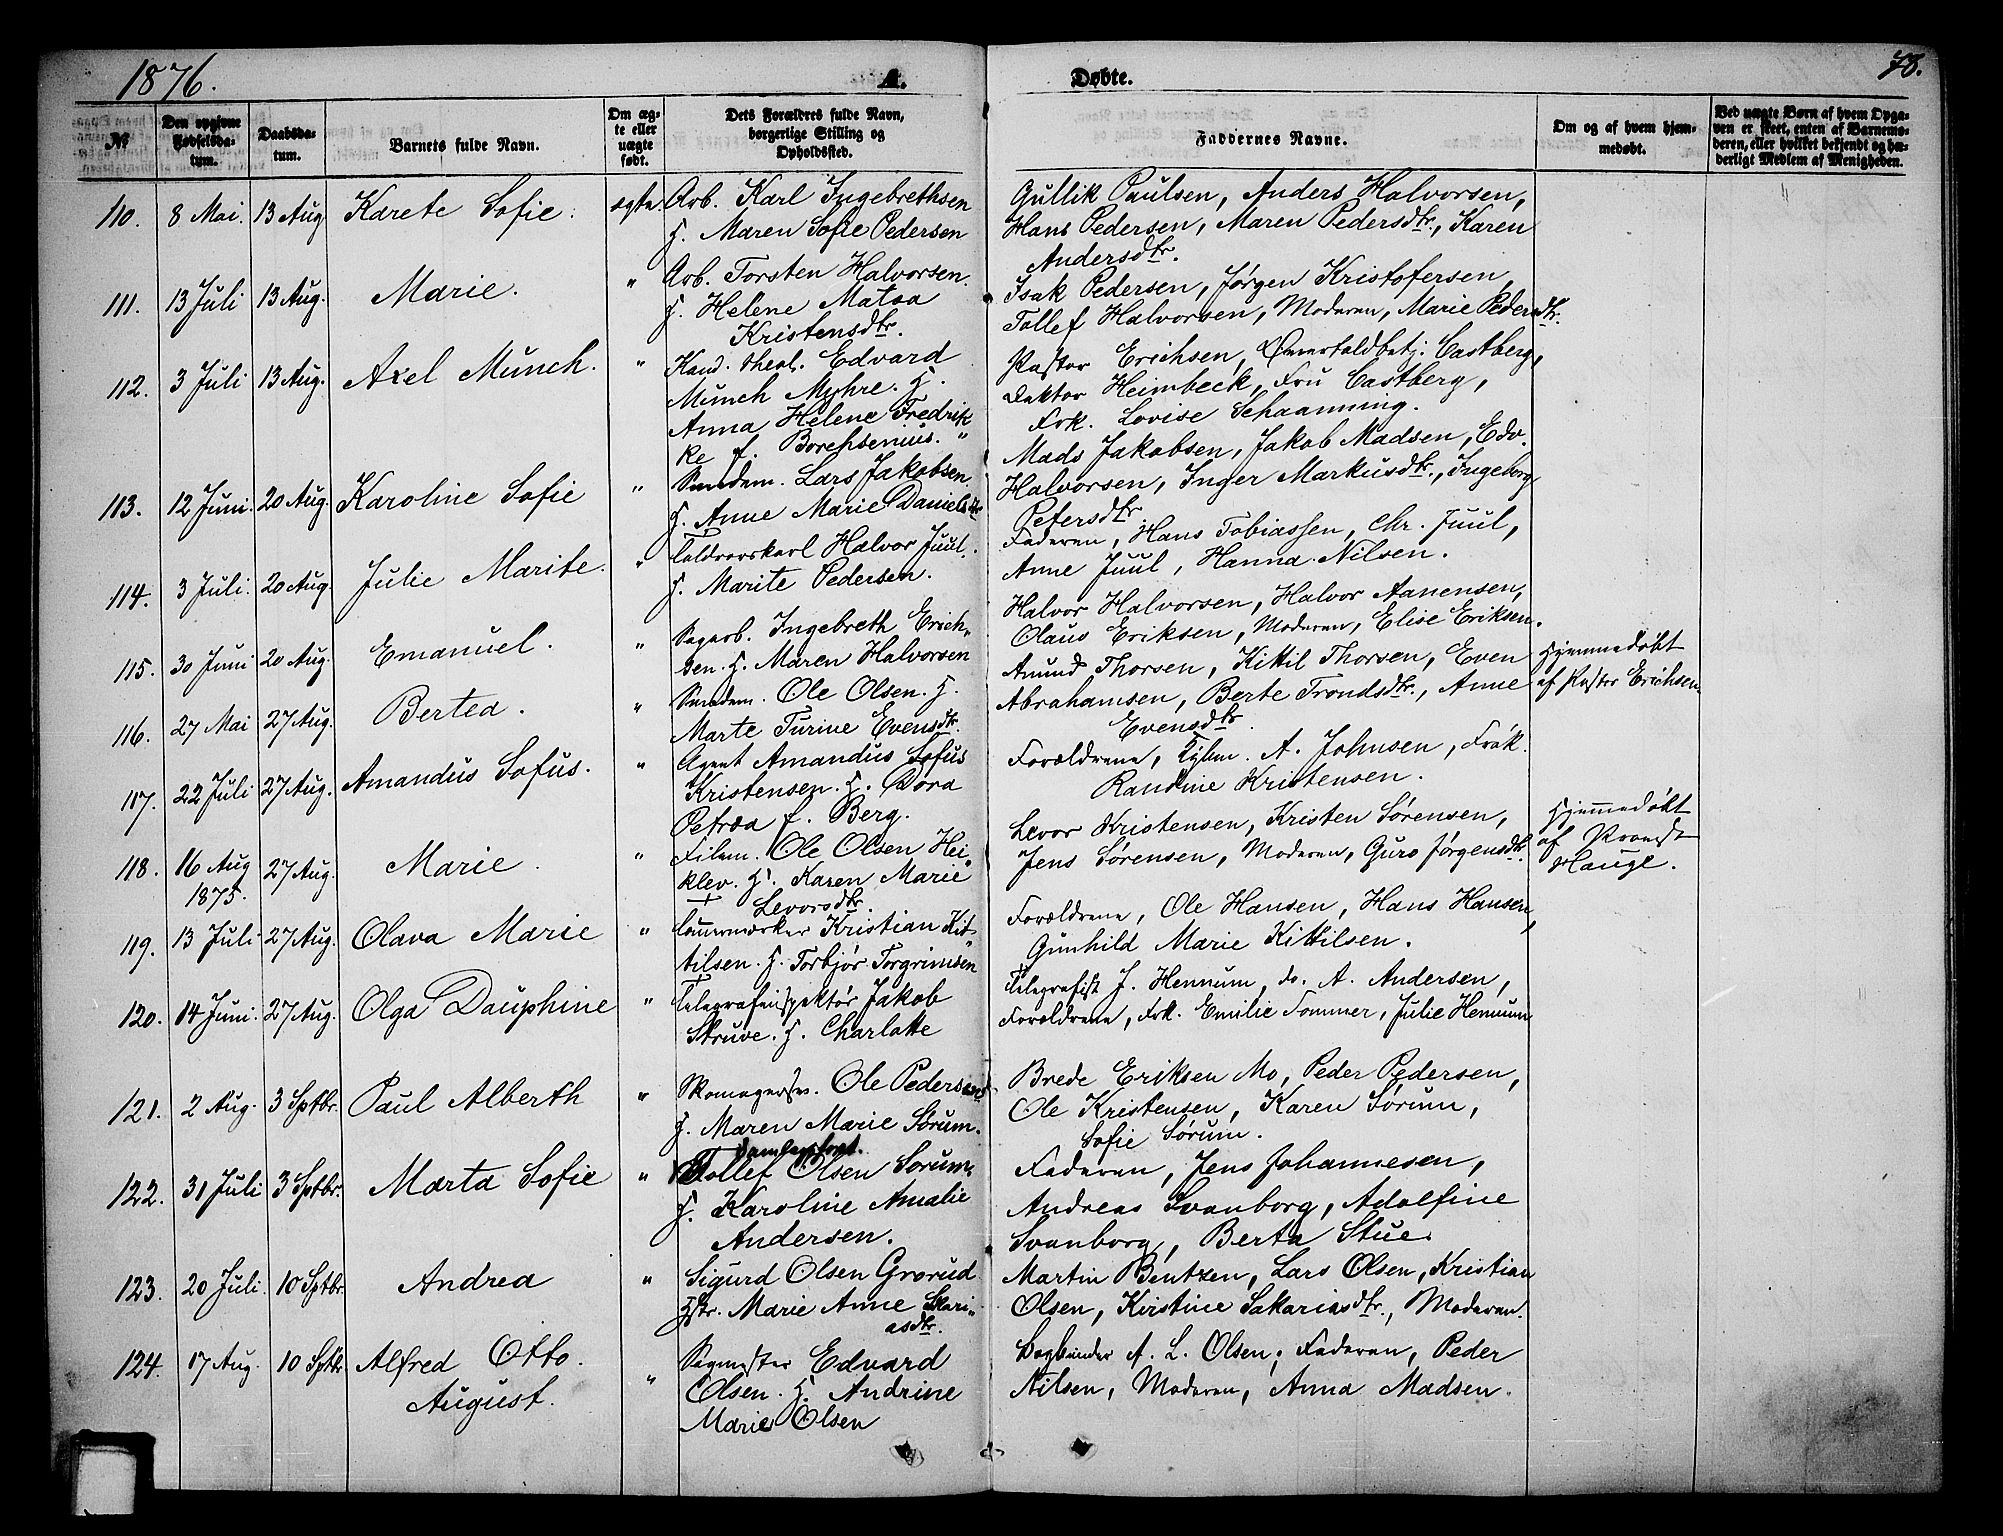 1876.
A. Døbte.
78.
№
Den opgivne Fødselsdatum.
Daabsdatum.
Barnets fulde Navn.
Om ægte eller uægte født.
Dets Forældres fulde Navn, borgerlige Stilling og Opholdssted.
Faddernes Navne.
Om og af hvem hjemmedøbt.
Ved uægte Børn af hvem Opgaven er skeet, enten af Barnemoderen, eller hvilket bekjendt og hæderligt Medlem af Menigheden.
110. 8 Mai. 13 Aug Karete Sofie. ægte. Arb. Karl Ingebrethsen
H. Maren Sofie Pedersen
Gullik Paulsen, Anders Halvorsen,
Hans Pedersen, Maren Pedersdtr., Karen
Andersdtr.
111. 13 Juli 13 Aug. Marie. " Arb. Torsten Halvorsen.
H. Helene Matea
Kristensdtr.
Isak Pedersen, Jørgen Kristofersen,
Tollef Halvorsen, Moderen, Marie Pedersdtr.
112. 3 Juli 13 Aug. Axel Münch. " Kand. theol. Edvard
Münch Myhre. H.
Anna Helene Fredrik
ke f. Borchsenius. "
Pastor Erichsen, Overtoldbetj. Castberg,
Doktor Heimbeck, Fru Castberg,
Frk. Lovise Schaanning.
113. 12 Juni. 20 Aug. Karoline Sofie " Lars Jakobsen
H. Anne Marie Danielsdtr
Mads Jakobsen, Jakob Madsen, Edv.
Halvorsen, Inger Markusdtr., Ingeborg
Petersdtr.
114. 3 Juli. 20 Aug. Julie Marite. " Toldroerskarl Halvor Juul.
H. Marite Pedersen.
Faderen, Hans Tobiassen, Chr. Juul,
Anne Juul, Hanna Nilsen.
115. 30 Juni 20 Aug. Emanuel. " Sagarb. Ingebreth Erich-
sen. H. Maren Halvorsen
Halvor Halvorsen, Halvor Aanensen,
Olaus Eriksen, Moderen, Elise Eriksen.
116. 27 Mai 27 Aug. Bertea. " Ole Olsen. H.
Marte Turine Evensdtr.
Amund Thorsen, Kittil Thorsen, Even
Abrahamsen, Berte Trondsdtr., Anne
Evensdtr.
Hjemmedøbt
af Pastor Erichsen.
117. 22 Juli 27 Aug. Amandus Sofus. " Agent Amandus Sofus
Kristensen. H. Dora
Petrea f. Berg.
Forældrene, A. Johnsen, Frøk.
Randine Kristensen.
118. 16 Aug 27 Aug. Marie. " Ole Olsen Hei-
klev. H. Karen Marie
Levorsdtr.
Levor Kristensen, Kristen Sørensen,
Jens Sørensen, Moderen, Guro Jørgensdtr.
Hjemmedøbt
af Provst
Hauge.
1875.
119. 13 Juli 27 Aug. Olava Marie " Kristian Kit-
tilsen. H. Torbjør Torgrimsen
Forældrene, Ole Hansen, Hans Hansen,
Gunhild Marie Kittilsen.
120. 14 Juni. 27 Aug. Olga Dauphine " Telegrafinspektør Jakob
Struve. H. Charlotte
Telegrafist J. Hennum, do. A. Andersen,
Forældrene, Frk. Emilie Sommer, Julie Hennum
121. 2 Aug. 3 Sptbr. Paul Alberth " Skomagersv. Ole Pedersen
H. Maren Marie Sørum.
Brede Eriksen Mo, Peder Pedersen,
Ole Kristensen, Karen Sørum,
Sofie Sørum.
122. 31 Juli 3 Sptbr. Marta Sofie " Tollef Olsen Sørum.
H. Karoline Amalie
Andersen.
Faderen, Jens Johannesen,
Andreas Svanborg, Adolfine
Svanborg, Berta Stue.
123. 20 Juli. 10 Sptbr. Andrea " Sigurd Olsen Grorud
Hstr. Marie Anne
asdtr.
Martin Bentzen, Lars Olsen, Kristian
Olsen, Kirstine Sakariasdtr., Moderen.
124. 17 Aug. 10 Sptbr. Alfred Otto.
August. " Sagmester Edvard
Olsen. H. Andrine
Marie Olsen
Bogbinder A. L. Olsen, Faderen, Peder
Nilsen, Moderen, Anna Madsen.